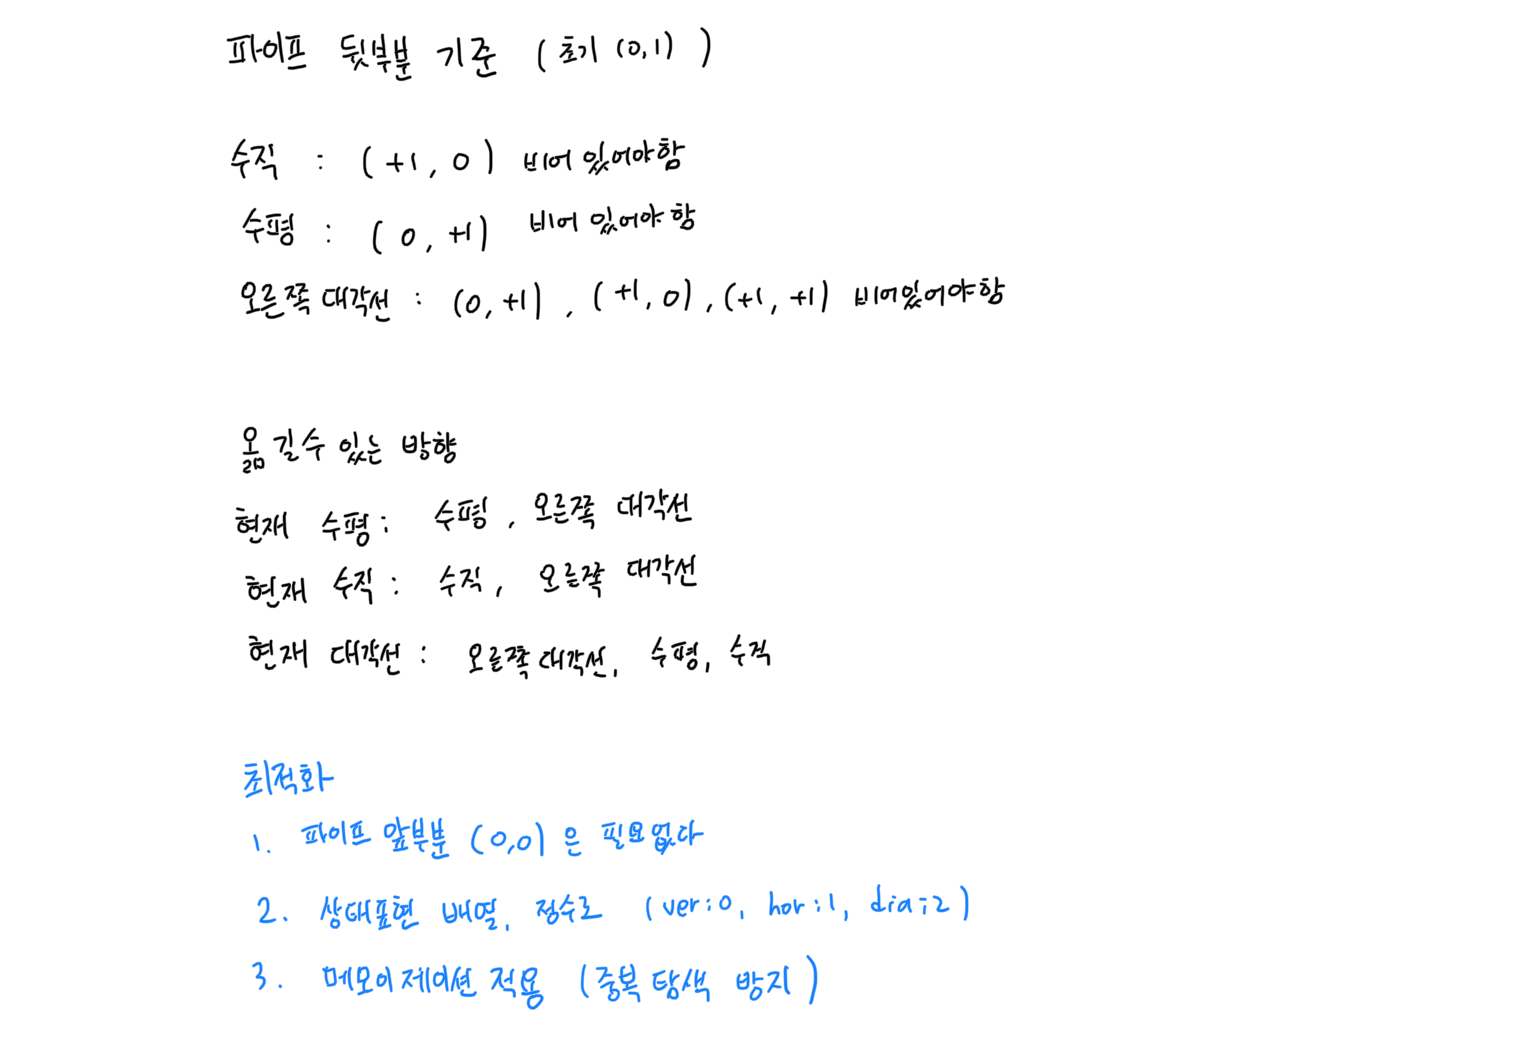 파이프 뒷부분 기준 ( 초기 (0,1) )
수직 : (+1, 0) 비어 있어야함
수평 : (0, +1) 비어 있어야함
오른쪽 대각선 : (0, +1) , (+1, 0), (+1, +1) 비어있어야함
옮길수 있는 방향
현재 수평 : 수평, 오른쪽 대각선
현재 수직 : 수직, 오른쪽 대각선
현재 대각선 : 오른쪽 대각선, 수평, 수직
최적화
1. 파이프 앞부분 (0,0) 은 필요없다
2. 상태표현 배열, 정수로 (ver:0, hor:1, dia:2)
3. 메모이제이션 적용 (중복 탐색 방지)